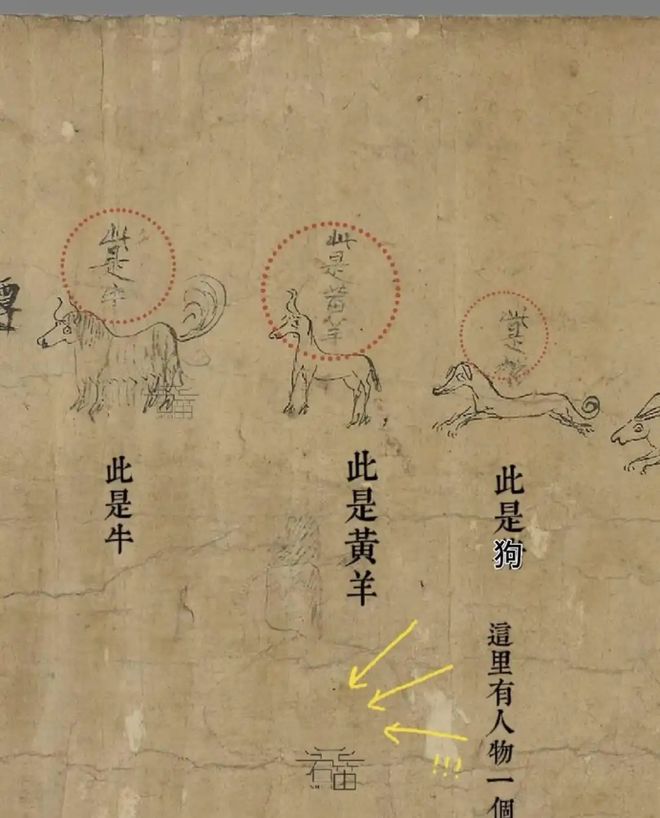 此是牛
此是黄羊
此是
此是牛
此是黃羊
此是狗
這里有人物一個
!!!